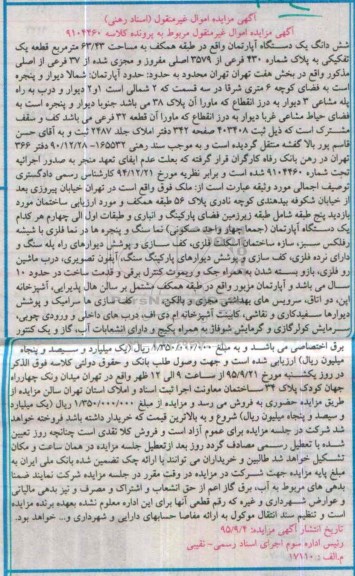 آگهی مزایده اموال غیرمنقول (اسناد رهنی)
آگهی مزایده اموال غیرمنقول مربوط به پرونده کلاسه ۹۱۰۴۴۶۰
شش دانگ یک دستگاه آپارتمان واقع در طبقه همکف به مساحت ۶۳/۴۳ مترمربع قطعه یک
تفکیکی به پلاک شماره ۴۳۰ فرعی از ۳۵۷۹ اصلی مفروز و مجزی شده از ۳۷ فرعی از اصلی
مذکور واقع در بخش هفت تهران تهران محدود به حدود: حدود آپارتمان: شمالا دیوار و پنجره
است به فضای کوچه ۶ متری شرقا در سه قسمت که ۲ شمالی است ۱و۲ دیوار و درب به راه
پله مشاعی ۳ دیوار به درز انقطاع که ماورا آن پلاک ۳۸ می باشد جنوبا دیوار و پنجره است به
فضای حیاط مشاعی غربا دیوار به درز انقطاع که ماورا آن قطعه ۳۲ فرعی می باشد کف و سقف
مشترک است که ذیل ثبت ۴۰۳۴۰۸ صفحه ۳۴۲ دفتر املاک جلد ۲۴۸۷ ثبت و به آقای حسن
قاسم پور بالا گفشه منتقل گردیده است و به موجب سند رهنی ۱۶۵۵۳۲-۹۰/۱۲/۲۸ دفتر ۳۶۶
تهران در رهن بانک رفاه کارگران قرار گرفته که بعلت عدم ایفای تعهد منجر به صدور اجرائیه
تحت شماره ۹۱۰۴۴۶۰ شده است و برابر نظریه مورخ ۹۴/۱۲/۲۱ کارشناس رسمی دادگستری
توصیف اجمالی مورد وثیقه عبارت است از: ملک فوق واقع است در تهران خیابان پیروزی بعد
از خیابان شکوفه بیدهندی کوچه نادری پلاک ۵۶ طبقه همکف و مورد ارزیابی ساختمان مورد
بازدید پنج طبقه شامل طبقه زیرزمین فضای پارکینگ و انباری و طبقات اول الی چهارم هر کدام
یک دستگاه آپارتمان (جمعا چهار واحد مسکونی) نما سنگ و پنجره ها در نما فلزی با شیشه
رفلکس سبز، سازه ساختمان اسکلت فلزی، کف سازی و پوشش دیوارهای راه پله سنگ و
دارای نرده فلزی، کف سازی و پوشش دیوارهای پارکینگ سنگ، آیفون تصویری، درب ماشین
رو فلزی، بازو بسته شدن به همراه جک و ریموت کنترل برقی و قدمت ساخت در حدود ۱۰
سال می باشد و آپارتمان مزبور واقع در طبقه همکف مشتمل بر سالن هال پذیرایی، آشپزخانه
اپن، دو اتاق، سرویس های بهداشتی مجزی و بالکن است کف سازی ها سرامیک و پوشش
دیوارها سفیدکاری و نقاشی، کابینت آشپزخانه ام دی اف، درب های داخلی و ورودی چوبی،
سرمایش کولرگازی و گرمایش شوفاژ به همراه پکیج و دارای انشعابات آب، گاز و یک کنتور
برق اختصاصی می باشد و به مبلغ ۱/۳۵۰/۰۰۰/۰۰۰ ریال (یک میلیارد و سیصد و پنجاه
میلیون ریال) ارزیابی شده است و جهت وصول طلب بانک و حقوق دولتی کلاسه فوق الذکر
در روز یکشنبه مورخ ۹۵/۹/۲۱ از ساعت ۹ الی ۱۲ ظهر واقع در تهران میدان ونک چهارراه
جهان کودک پلاک ۳۴ ساختمان معاونت اجرا ثبت اسناد و املاک استان تهران سالن مزایده از
طریق مزایده حضوری به فروش می رسد و مزایده از مبلغ ۱/۳۵۰/۰۰۰/۰۰۰ ریال (یک میلیارد
و سیصد و پنجاه میلیون ریال) شروع و به بالاترین قیمت که خریدار داشته باشد فروخته خواهد
شد شرکت در جلسه مزایده برای عموم آزاد است و فروش کلا نقدی است چنانچه روز تعیین
شده با تعطیل رسمی مصادف گردد روز بعد از تعطیل جلسه مزایده در همان ساعت و مکان
تشکیل خواهد شد طالبین و خریداران می توانند با ارائه چک تضمین شده بانک ملی ایران به
مبلغ پایه مزایده جهت شرکت در مزایده در وقت مقرر در جلسه مزایده شرکت نمایند ضمنا
بدهی های مربوط به آب، برق گاز اعم از حق انشعاب و اشتراک و مصرف و نیز بدهی مالیاتی
و عوارض شهرداری و غیره که رقم قطعی آنها برای این اداره معلوم نشده بعهده برنده مزایده
است و تنظیم سند انتقال موکول به ارائه مفاصا حسابهای دارایی و شهرداری و... خواهد بود.
تاریخ انتشار آگهی مزایده: ۹۵/۹/۴
رئیس اداره سوم اجرای اسناد رسمی-نقیبی
م.الف: ۱۷۱۱۰